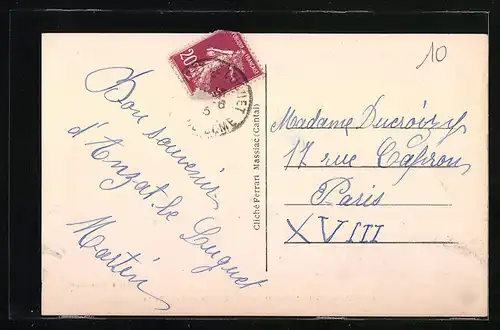 10
20
Bon souvenir
d'Anzat-le Luguet
Martin
Cliché Ferrari Massiac (Cantal)
Madame Ducroizy
17 rue Capron
Paris
XVIII